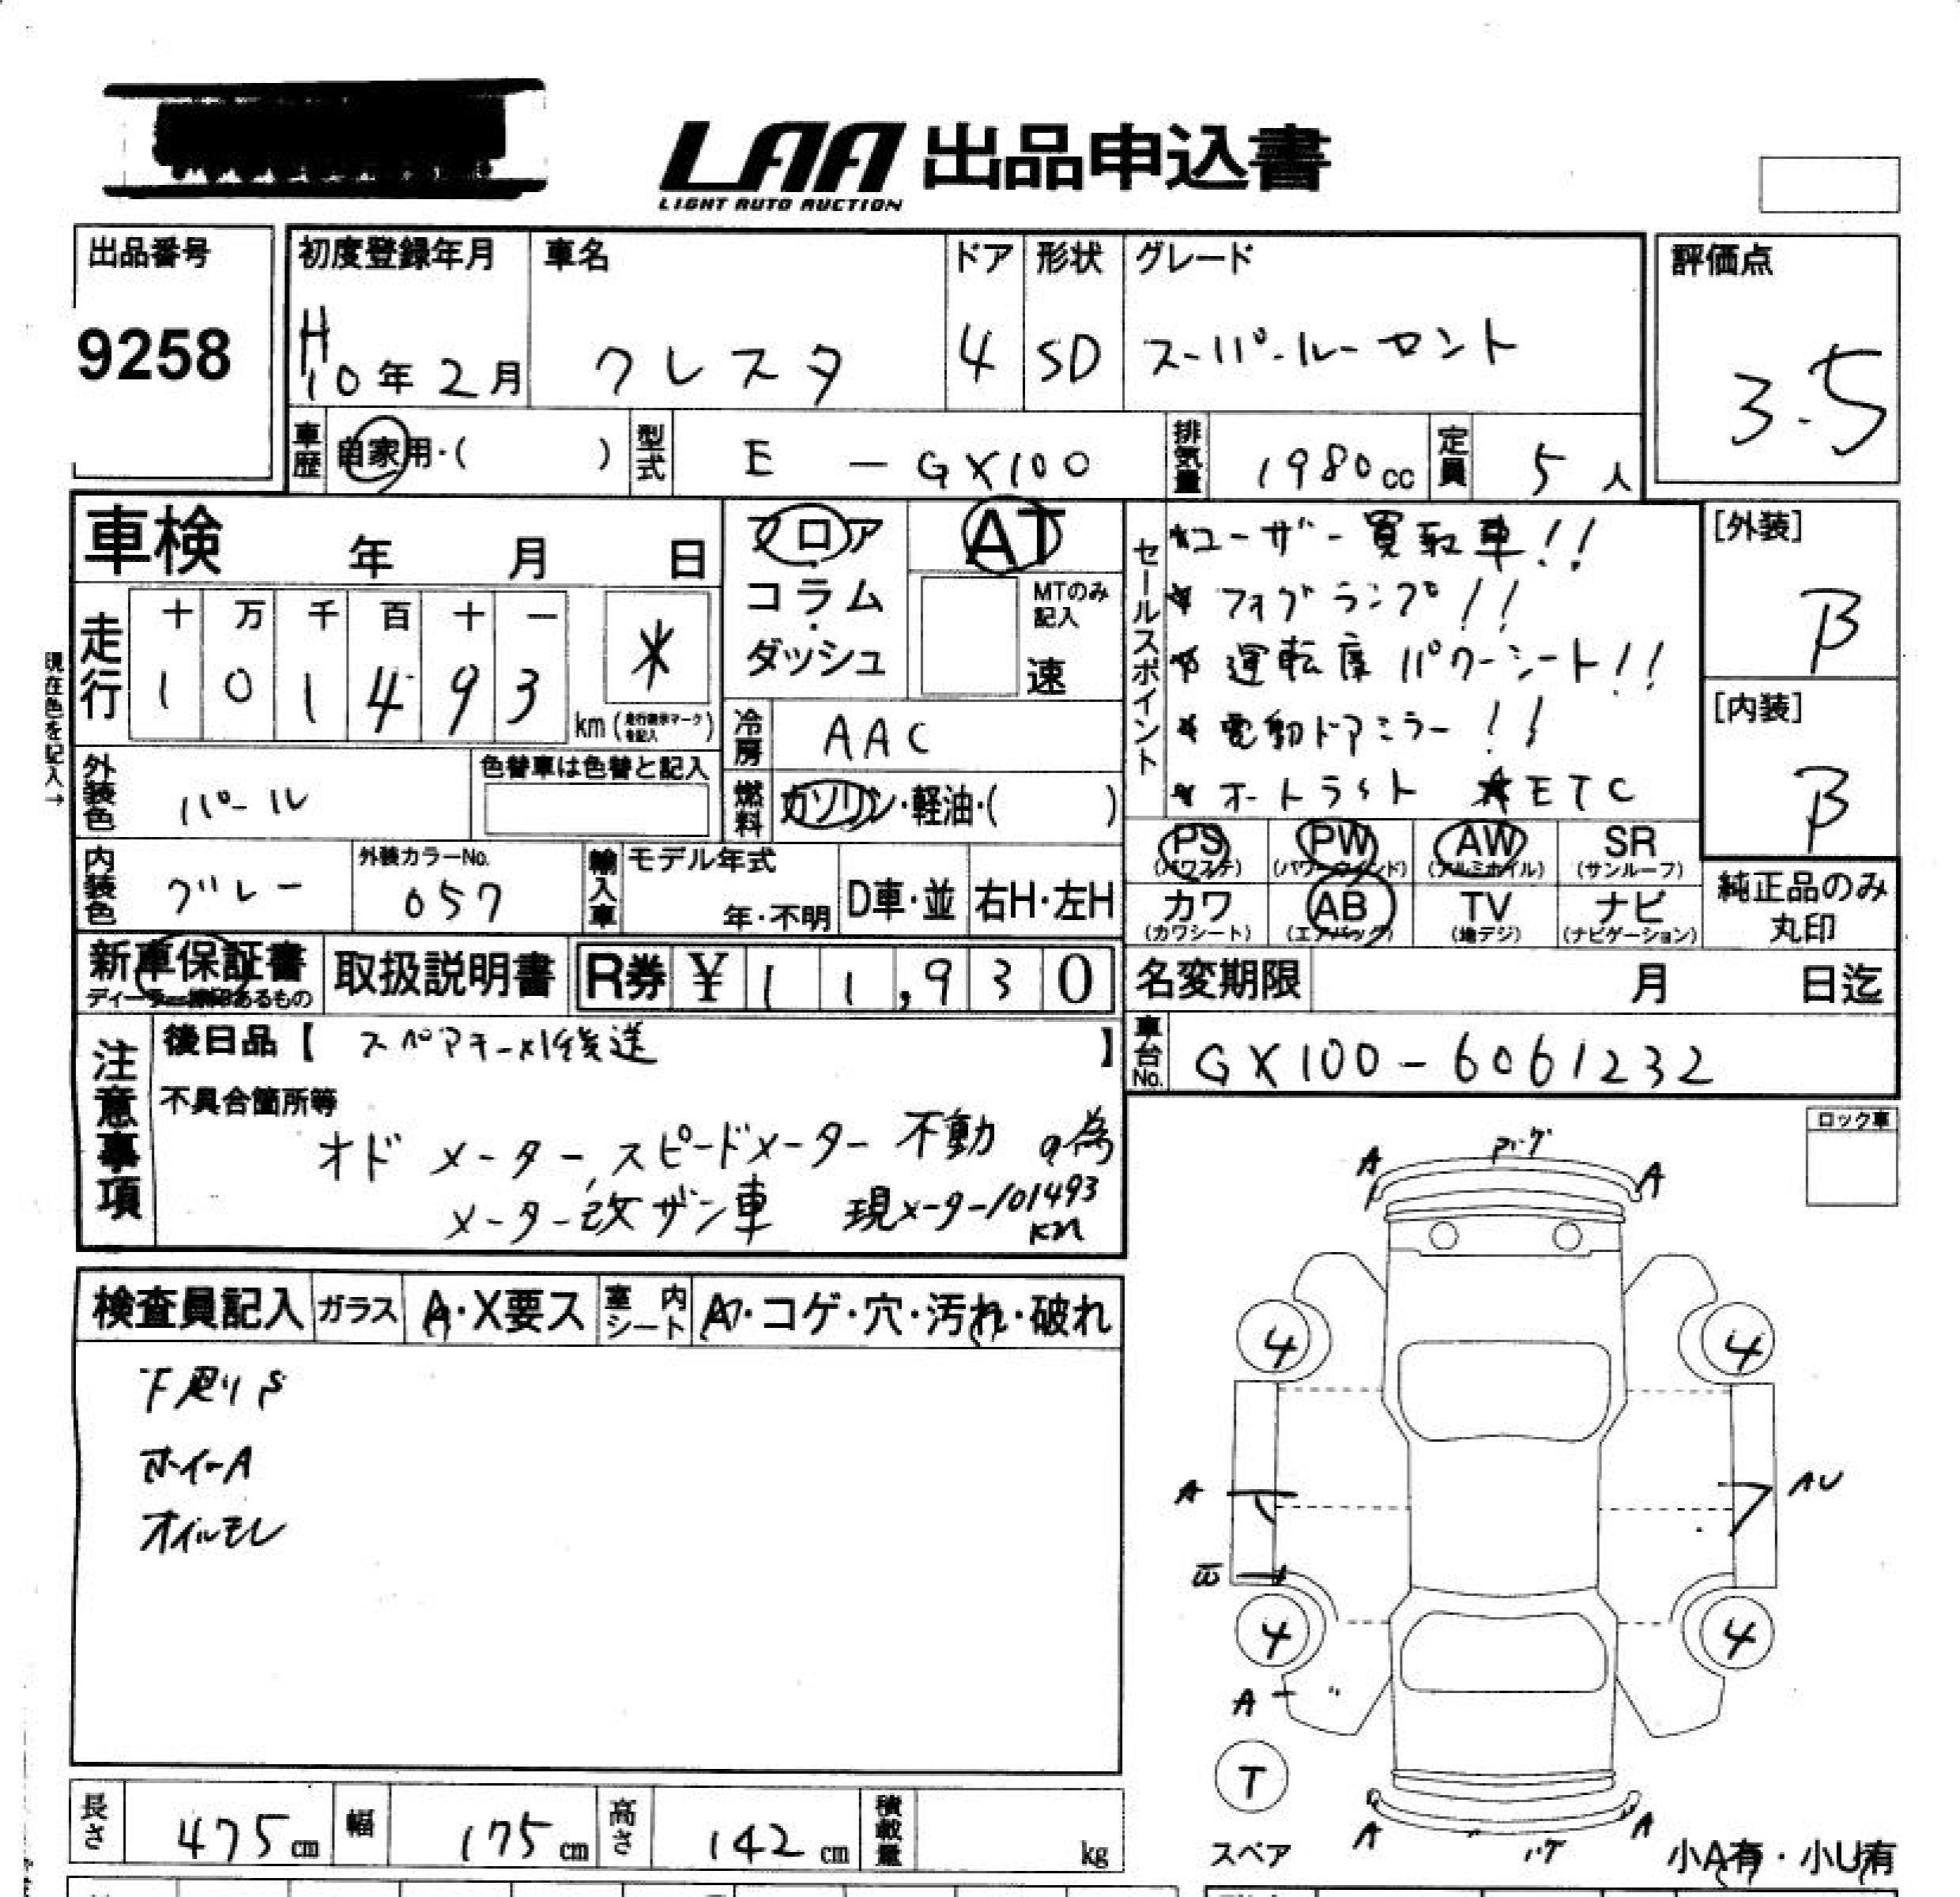 LAA 出品申込書
LIGHT AUTO AUCTION
出品番号
9258
初度登録年月
H10年2月
車名
クレスタ
ドア
4
形状
SD
グレード
スーパールーセント
評価点
3.5
車歴
自家用・( )
型式
E - GX100
排気量
1980cc
定員
5人
車検 年 月 日
フロア
コラム
ダッシュ
AT
MTのみ
記入
速
走行
十 万 千 百 十 一
1 0 1 4 9 3
*
km (走行表示マークを記入)
現在色を記入→
冷房
AAC
燃料
ガソリン・軽油・( )
外装色
パール
色替車は色替と記入
内装色
グレー
外装カラーNo.
057
輸入車
モデル年式
年・不明
D車・並
右H・左H
セールスポイント
*ユーザー買取車!!
* フォグランプ!!
* 運転席パワーシート!!
* 電動ドアミラー!!
* オートライト *ETC
[外装]
B
[内装]
B
PS
(パワステ)
PW
(パワーウインド)
AW
(アルミホイル)
SR
(サンルーフ)
カワ
(カワシート)
AB
(エアバック)
TV
(地デジ)
ナビ
(ナビゲーション)
純正品のみ
丸印
新車保証書
取扱説明書
R券 ¥11,930
名変期限 月 日迄
車台No.
GX100-6061232
注意事項
後日品【 スペアキー×1後送 】
不具合箇所等
オドメーター,スピードメーター 不動 の為
メーター改ザン車 現メーター101493km
検査員記入
ガラス
A・X要ス
室内シート
A・コゲ・穴・汚れ・破れ
下廻りS
ホイールA
オイルモレ
ロック車
A
A
4
4
A
AU
4
4
A
T
スペア
A
A
小A有・小U有
長さ
475cm
幅
175cm
高さ
142cm
積載量
kg